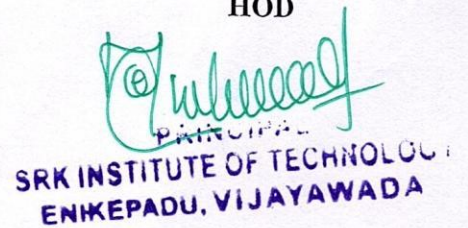 HOD
PRINCIPAL
SRK INSTITUTE OF TECHNOLOGY
ENIKEPADU, VIJAYAWADA